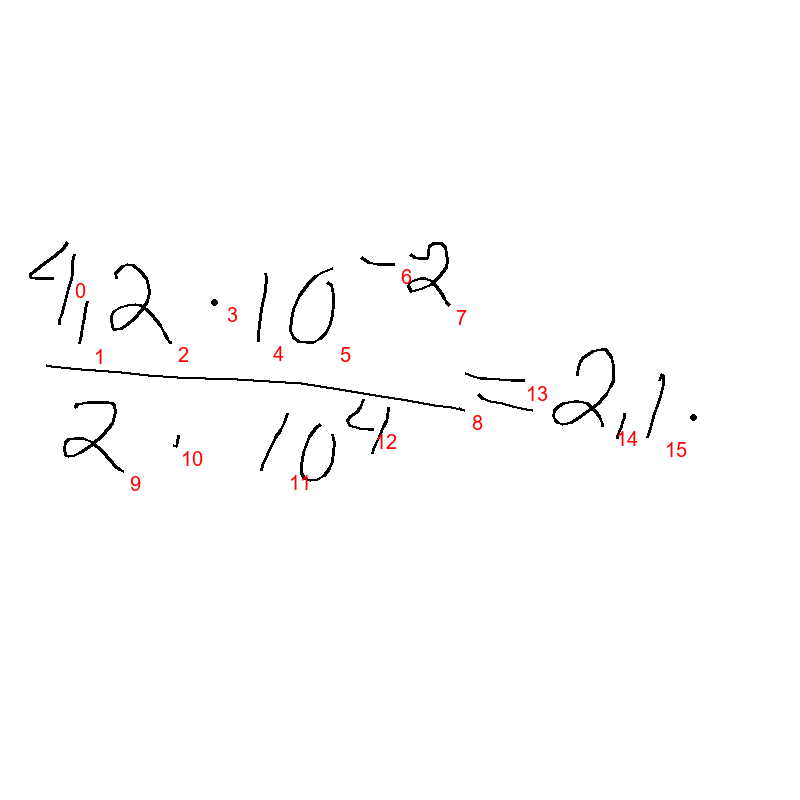 4,2 · 10⁻²
2 · 10⁴
= 2,1 ·
0 1 2 3 4 5 6 7 8 9 10 11 12 13 14 15